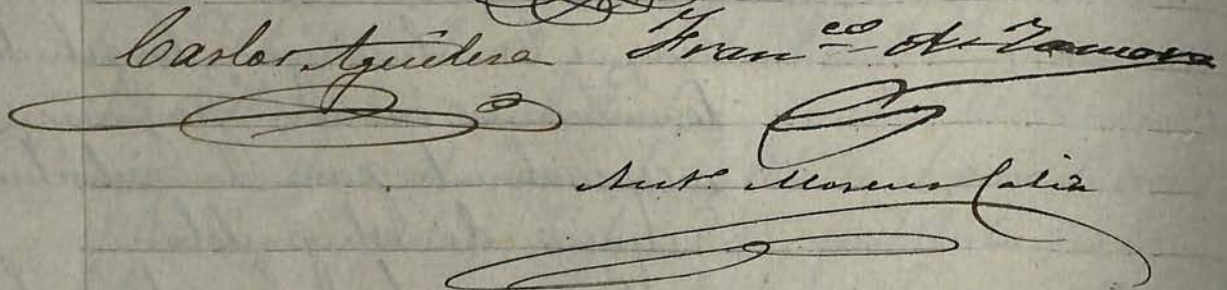 Carlos Aguilera Fran.co A. Zamora
Ant.o Moreno Caliz